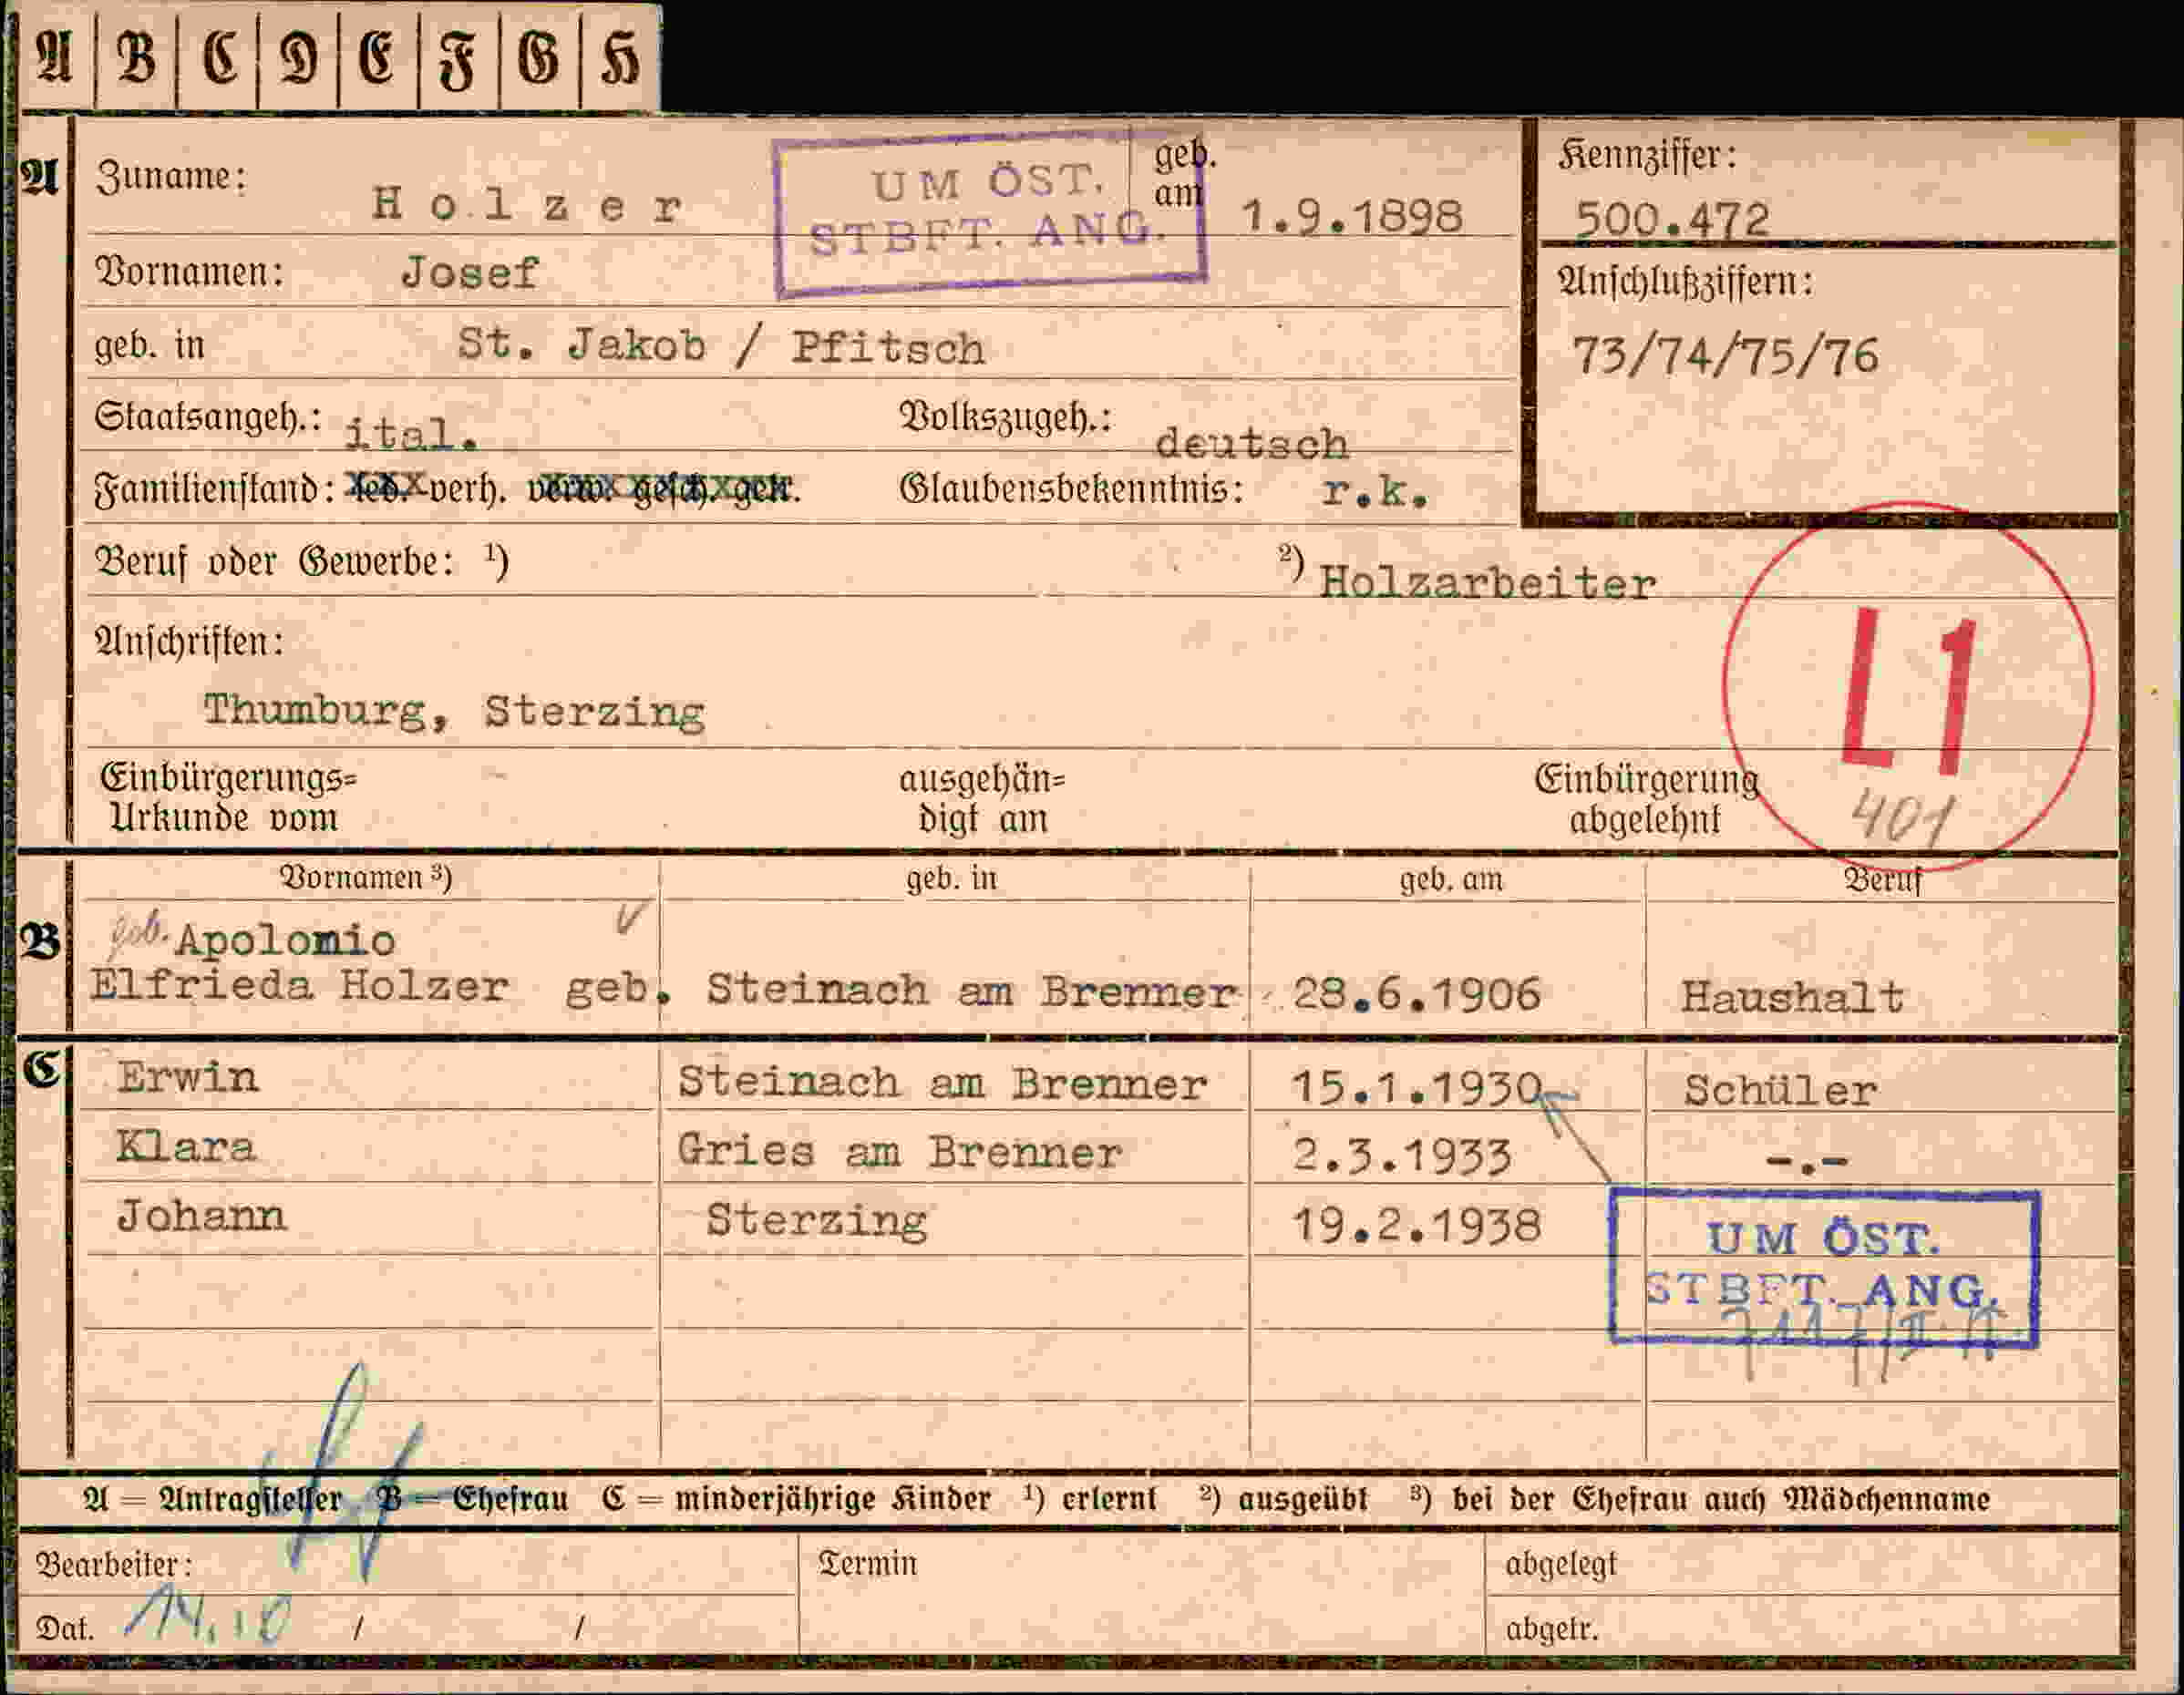 A B C D E F G H
A Zuname: Holzer geb. am 1.9.1898
UM ÖST.
STBFT. ANG.
Kennziffer:
500.472
Vornamen: Josef
Anschlußziffern:
73/74/75/76
geb. in St. Jakob / Pfitsch
Staatsangeh.: ital. Volkszugeh.: deutsch
Familienstand: led. verh. verw. gesch. getr. Glaubensbekenntnis: r.k.
Beruf oder Gewerbe: ¹) ²) Holzarbeiter
Anschriften:
Thumburg, Sterzing
L1
401
Einbürgerungs= ausgehän= Einbürgerung
Urkunde vom digt am abgelehnt
Vornamen ³) geb. in geb. am Beruf
B geb. Apolomio
Elfrieda Holzer geb. Steinach am Brenner 28.6.1906 Haushalt
C Erwin Steinach am Brenner 15.1.1930 Schüler
Klara Gries am Brenner 2.3.1933 -.-
Johann Sterzing 19.2.1938
UM ÖST.
STBFT. ANG.
A = Antragsteller B = Ehefrau C = minderjährige Kinder ¹) erlernt ²) ausgeübt ³) bei der Ehefrau auch Mädchenname
Bearbeiter: Termin abgelegt
Dat. 14.10 / / abgetr.